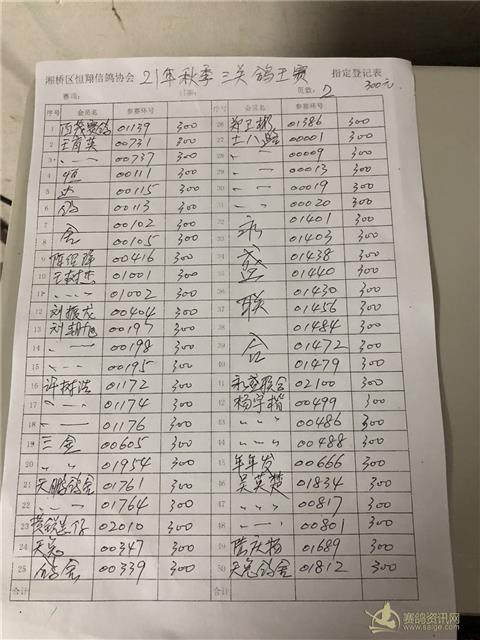 湘桥区恒翔信鸽协会 21年秋季三关鸽王赛 指定登记表
赛项: 日期: 页数: 2 300元
序号 会员名 参赛环号 序号 会员名 参赛环号
1 赛鸽 01139 300 26 郑卫彬 01386 300
2 王育英 00731 300 27 士八 00001 300
3 〃 — 〃 00737 300 28 〃 — 〃 00009 300
4 恒 00111 300 29 〃 — 〃 00013 300
5 达 00115 300 30 〃 — 〃 00019 300
6 鸽 00113 300 31 〃 — 〃 00020 300
7 舍 00102 300 32 永 01401 300
8 00105 300 33 01403 300
9 00416 300 34 盛 01438 300
10 王树杰 01001 300 35 01440 300
11 〃 — 〃 01002 300 36 联 01430 300
12 刘振龙 00404 300 37 01456 300
13 刘 00197 300 38 01484 300
14 〃 — 〃 00198 300 39 合 01472 300
15 〃 — 〃 00195 300 40 01479 300
16 许树浩 01172 300 41 永盛联合 02100 300
17 〃 — 〃 01174 300 42 杨宇楷 00499 300
18 〃 — 〃 01176 300 43 〃 〃 00486 300
19 三金 00605 300 44 〃 〃 00488 300
20 〃 〃 01954 300 45 年年发 00666 300
21 天鹏鸽舍 01761 300 46 吴英楚 01834 300
22 〃 — 〃 01764 300 47 〃 〃 00817 300
23 02010 300 48 〃 — 〃 00801 300
24 天 00347 300 49 陈庆杨 01689 300
25 鸽舍 00339 300 50 鸽舍 01812 300
合计: 合计:
赛鸽资讯网
www.saige.com